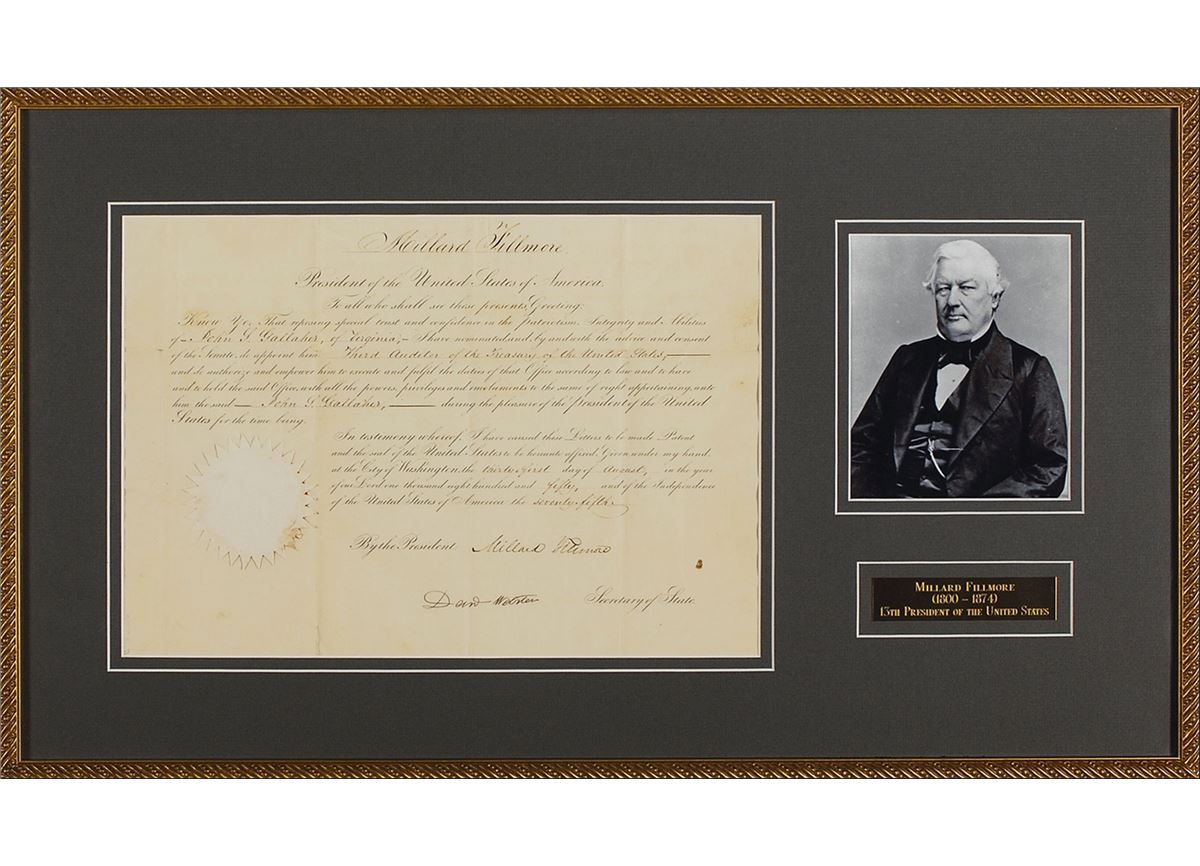 Millard Fillmore
President of the United States of America.
To all who shall see these presents, Greeting:
Know Ye, That reposing special trust and confidence in the Patriotism, Integrity and Abilities
of – John S. Gallaher, of Virginia, – I have nominated, and by and with the advice and consent
of the Senate, do appoint him Third Auditor of the Treasury of the United States, ——
and do authorize and empower him to execute and fulfil the duties of that Office according to law and to have
and to hold the said Office, with all the powers, privileges and emoluments to the same of right appertaining, unto
him the said — John S. Gallaher, —— during the pleasure of the President of the United
States for the time being.
In testimony whereof, I have caused these Letters to be made Patent
and the seal of the United States to be hereunto affixed. Given under my hand,
at the City of Washington, the thirty first day of August, in the year
of our Lord one thousand eight hundred and fifty, and of the Independence
of the United States of America the seventy-fifth.
By the President Millard Fillmore
Danl Webster Secretary of State.
MILLARD FILLMORE
(1800 – 1874)
13TH PRESIDENT OF THE UNITED STATES